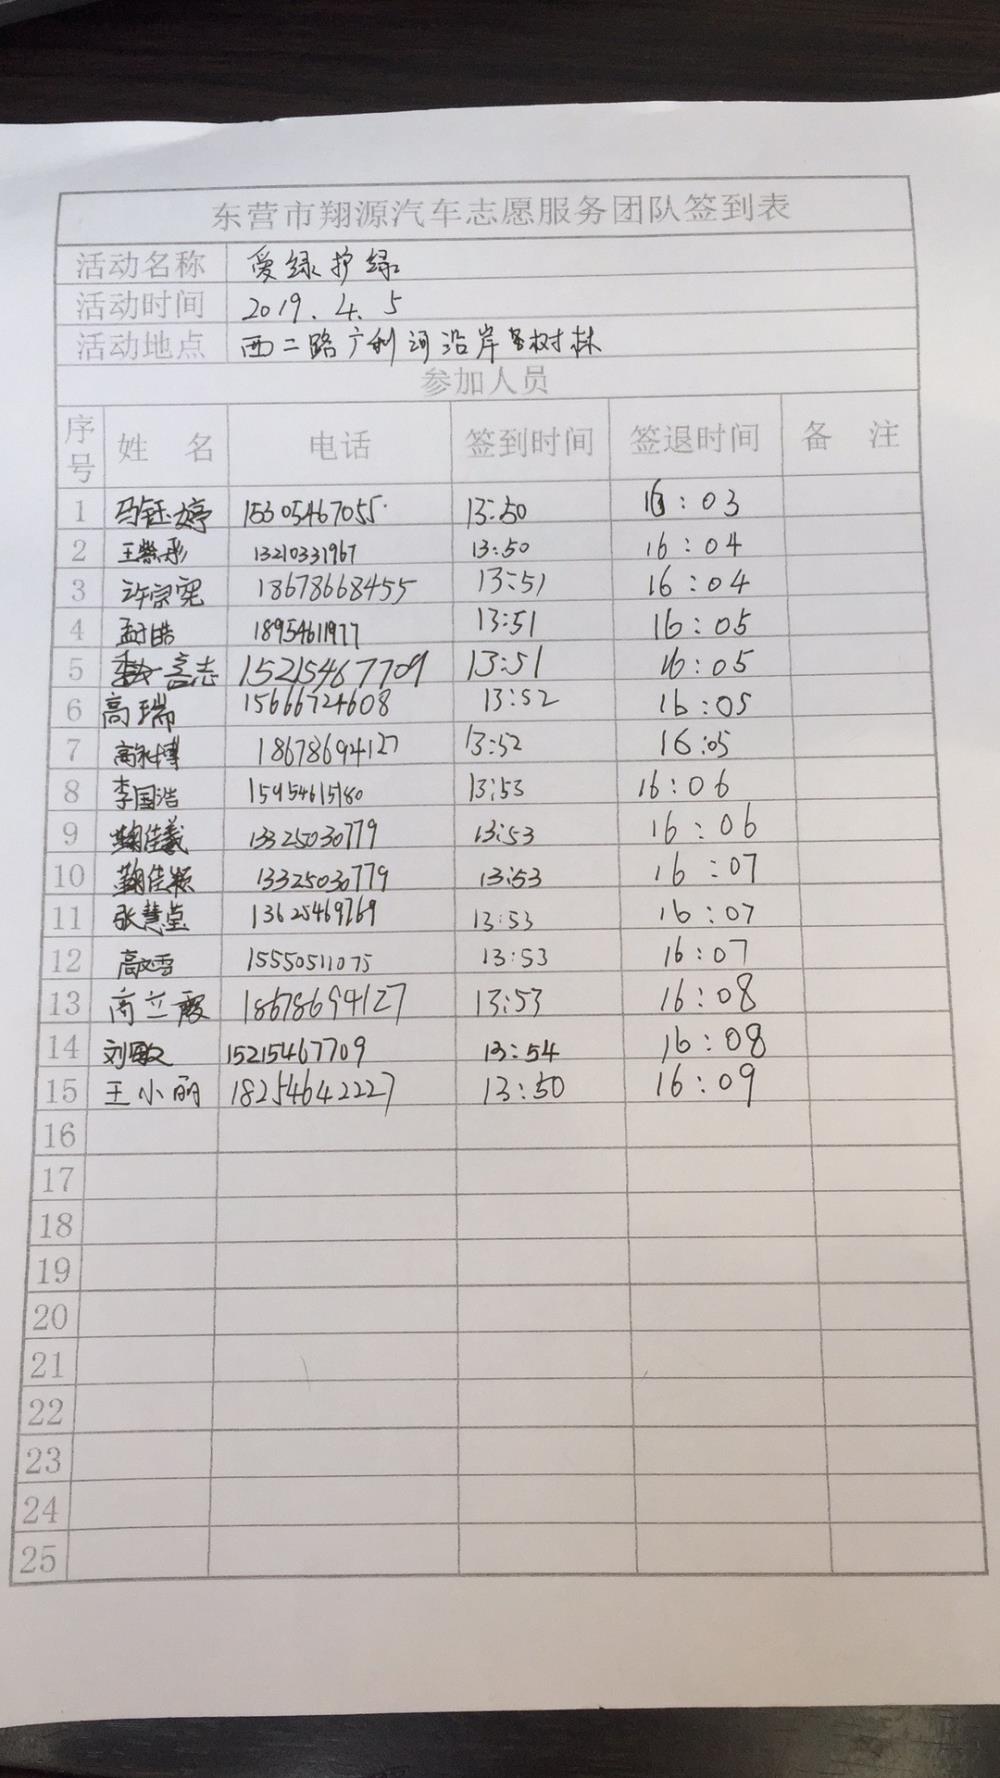 东营市翔源汽车志愿服务团队签到表
活动名称 爱绿护绿
活动时间 2019.4.5
活动地点 西二路广利河沿岸 树林
参加人员
序号 姓 名 电话 签到时间 签退时间 备 注
1 马钰婷 15305467055 13:50 16:03
2 王 彤 13210331967 13:50 16:04
3 许宗宪 18678668455 13:51 16:04
4 孟皓 18954611977 13:51 16:05
5 志 15215467709 13:51 16:05
6 高瑞 15666724608 13:52 16:05
7 高 博 18678694127 13:52 16:05
8 李国浩 15954615180 13:53 16:06
9 鞠佳羲 13325030779 13:53 16:06
10 鞠佳颖 13325030779 13:53 16:07
11 张慧莹 13625469769 13:53 16:07
12 高 雪 15550511075 13:53 16:07
13 商立霞 18678694127 13:53 16:08
14 刘敏 15215467709 13:54 16:08
15 王小丽 18254642227 13:50 16:09
16
17
18
19
20
21
22
23
24
25